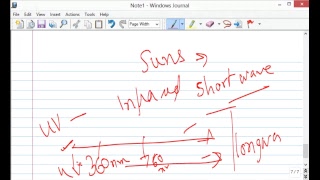 Note1 - Windows Journal
File Edit View Insert Actions Tools Help
Page Width
Suns
UV - Infrared short wave
UV 360nm 760 longwa
7 / 7